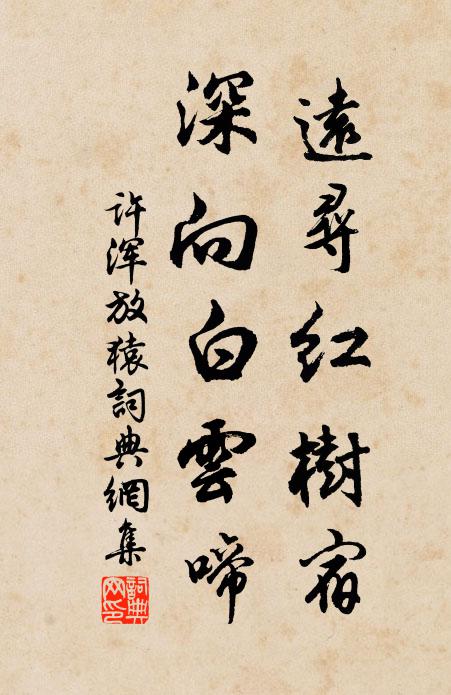 遠尋紅樹宿
深向白雲啼
许浑放猿詞典網集
詞典網印